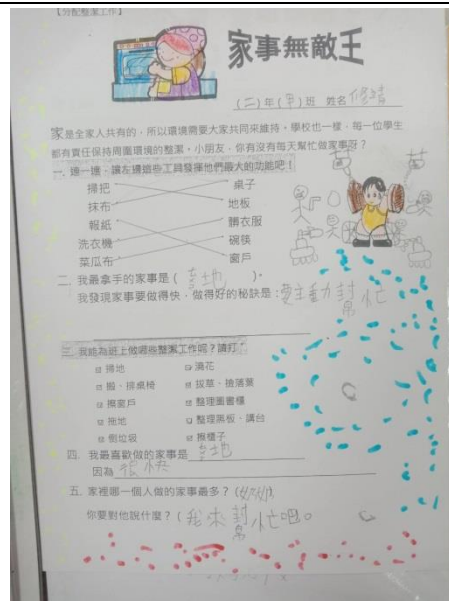 【分配整潔工作】
家事無敵王
(二)年( )班 姓名
家是全家人共有的，所以環境需要大家共同來維持。學校也一樣，每一位學生
都有責任保持周圍環境的整潔。小朋友，你有沒有每天幫忙做家事呀？
一. 連一連，讓左邊這些工具發揮他們最大的功能吧！
掃把 桌子
抹布 地板
報紙 髒衣服
洗衣機 碗筷
菜瓜布 窗戶
二. 我最拿手的家事是( 地 )。
我發現家事要做得快，做得好的秘訣是：要主動封忙
幫
三. 我能為班上做哪些整潔工作呢？請打
掃地 澆花
搬、排桌椅 拔草、撿落葉
擦窗戶 整理圖書櫃
拖地 整理黑板、講台
倒垃圾 擦櫃子
四. 我最喜歡做的家事是 地
因為 很快
五. 家裡哪一個人做的家事最多？(
你要對他說什麼？( 我來封忙吧。
幫